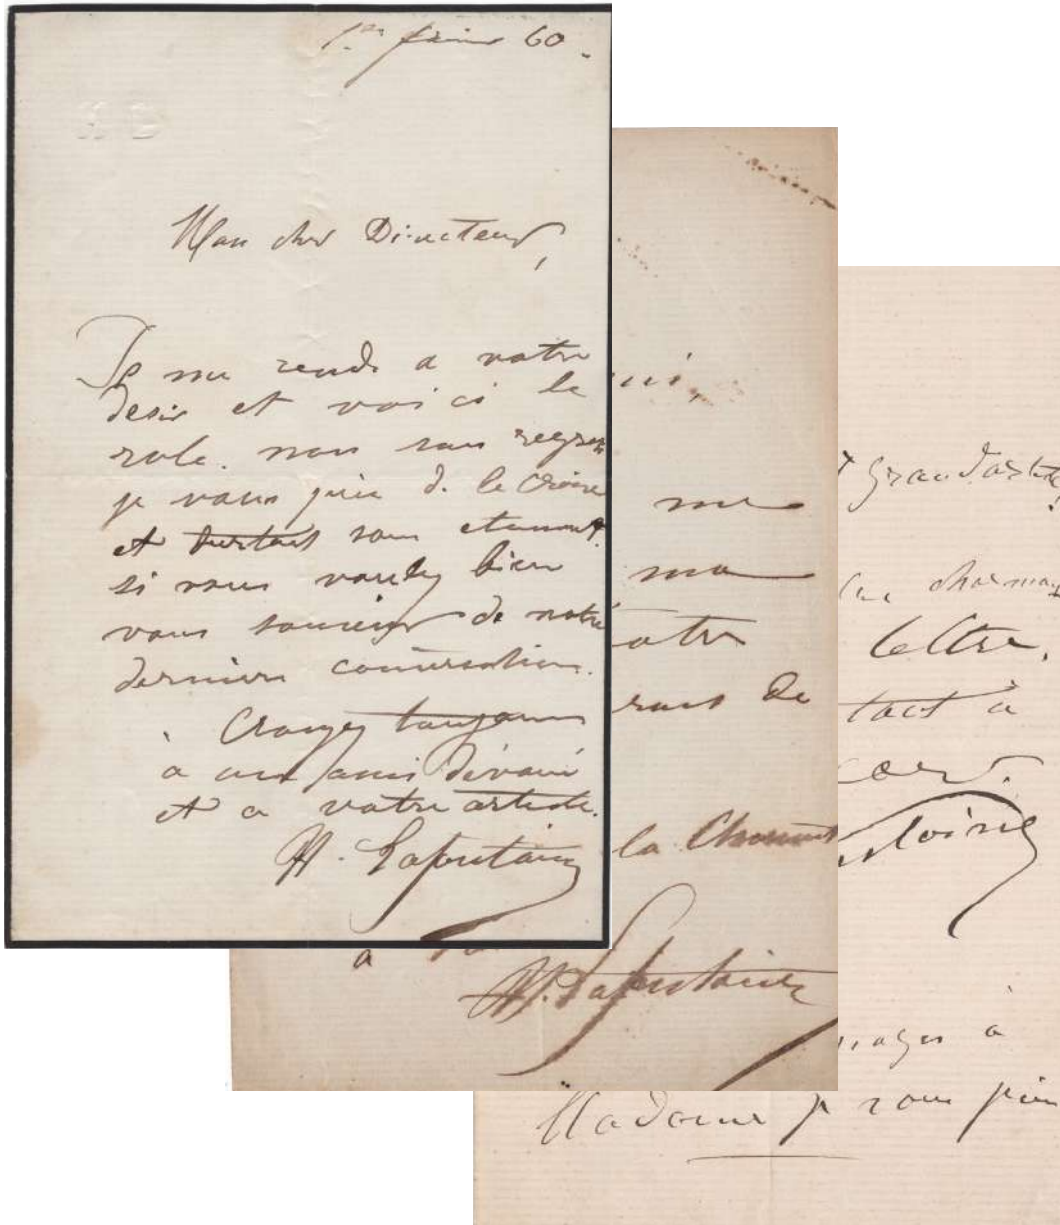 1er février 60.
H D
Mon cher Directeur,
Je me rends a votre
desir et voici le
role. non sans regret
je vous prie de le croire
et surtout sans etonnemt.
si vous voulez bien
vous souvenir de notre
derniere conversation.
Croyez toujours
à un ami dévoué
et a votre artiste.
H. Lafontaine
me
ma
otre
de
la
a
H. Lafontaine
grand artiste
charman
lettre,
tact à
à
Madame je vous prie